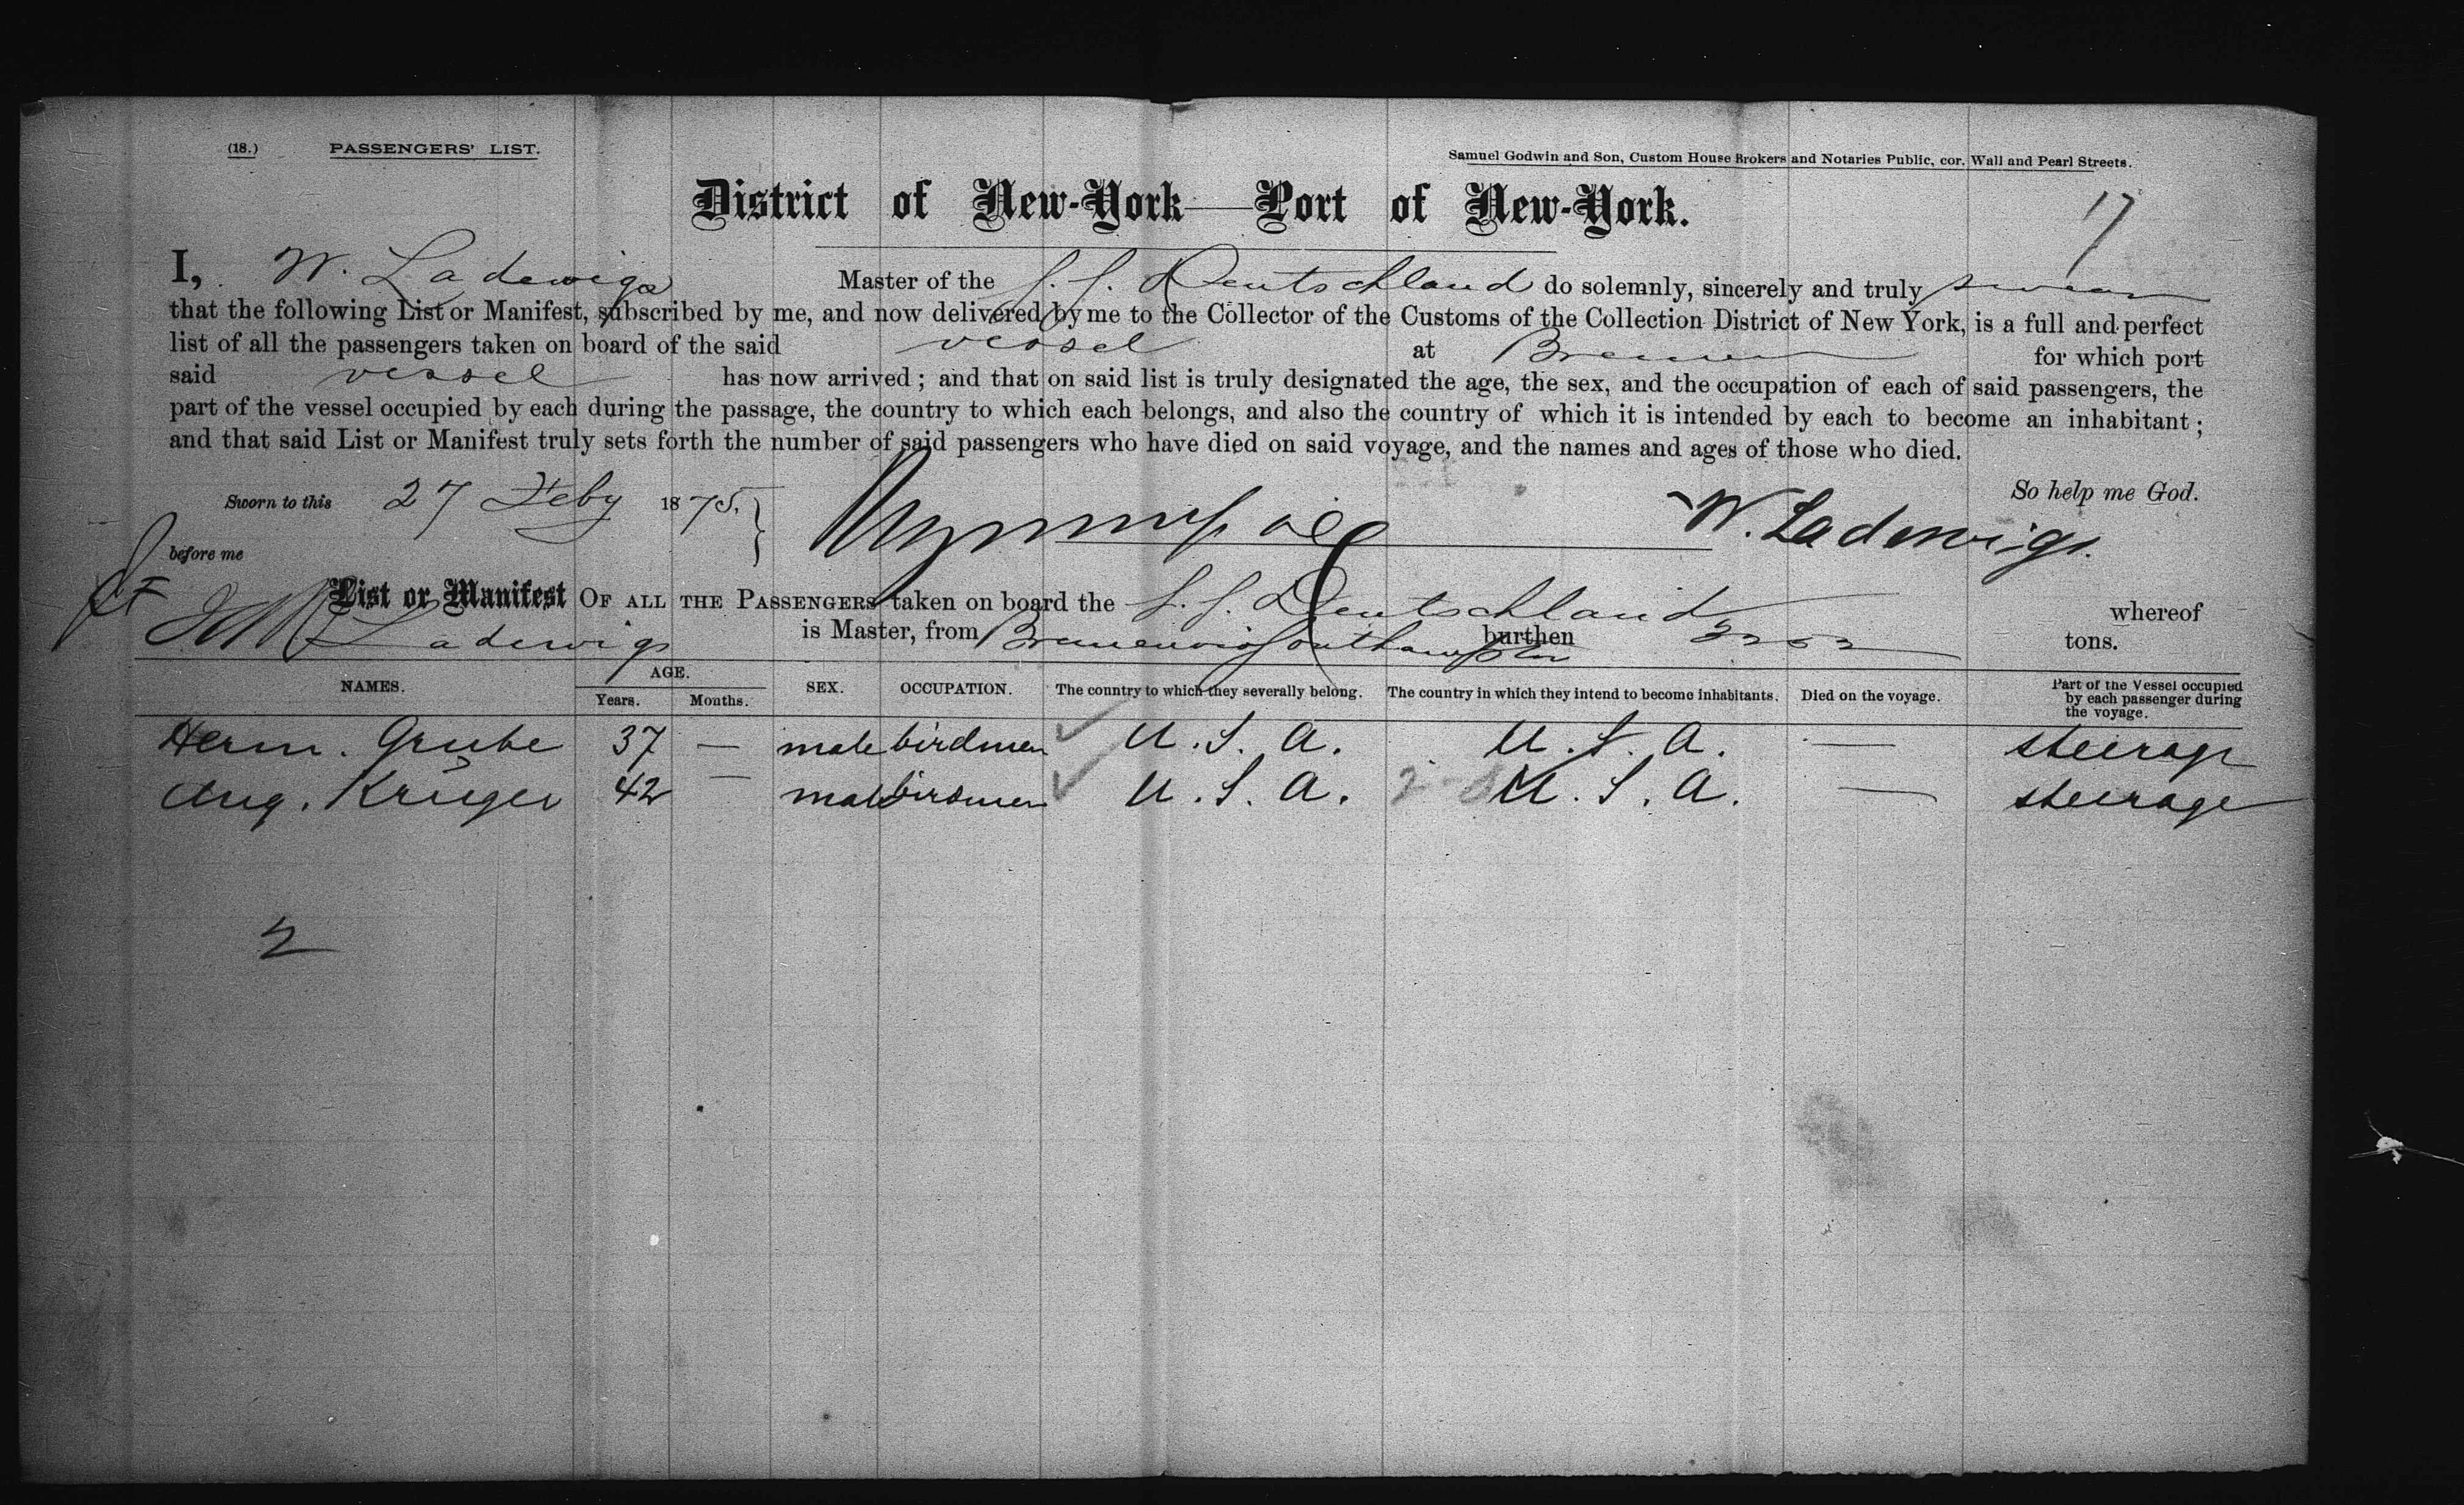 (18.) PASSENGERS' LIST.
Samuel Godwin and Son, Custom House Brokers and Notaries Public, cor. Wall and Pearl Streets.
District of New-York—Port of New-York.
17
I, W. Ladewigs Master of the S. S. Deutschland do solemnly, sincerely and truly swear
that the following List or Manifest, subscribed by me, and now delivered by me to the Collector of the Customs of the Collection District of New York, is a full and perfect
list of all the passengers taken on board of the said vessel at Bremen for which port
said vessel has now arrived; and that on said list is truly designated the age, the sex, and the occupation of each of said passengers, the
part of the vessel occupied by each during the passage, the country to which each belongs, and also the country of which it is intended by each to become an inhabitant;
and that said List or Manifest truly sets forth the number of said passengers who have died on said voyage, and the names and ages of those who died.
So help me God.
Sworn to this 27 Feby 1875. W. Ladewigs.
before me
List or Manifest OF ALL THE PASSENGERS taken on board the S. S. Deutschland whereof
Ladewigs is Master, from Bremen via Southampton burthen tons.
NAMES. AGE. Years. Months. SEX. OCCUPATION. The country to which they severally belong. The country in which they intend to become inhabitants. Died on the voyage. Part of the Vessel occupied by each passenger during the voyage.
Herm. Grube 37 — male birdmen U. S. A. U. S. A. — steerage
Aug. Krüger 42 — male birdmen U. S. A. U. S. A. — steerage
2